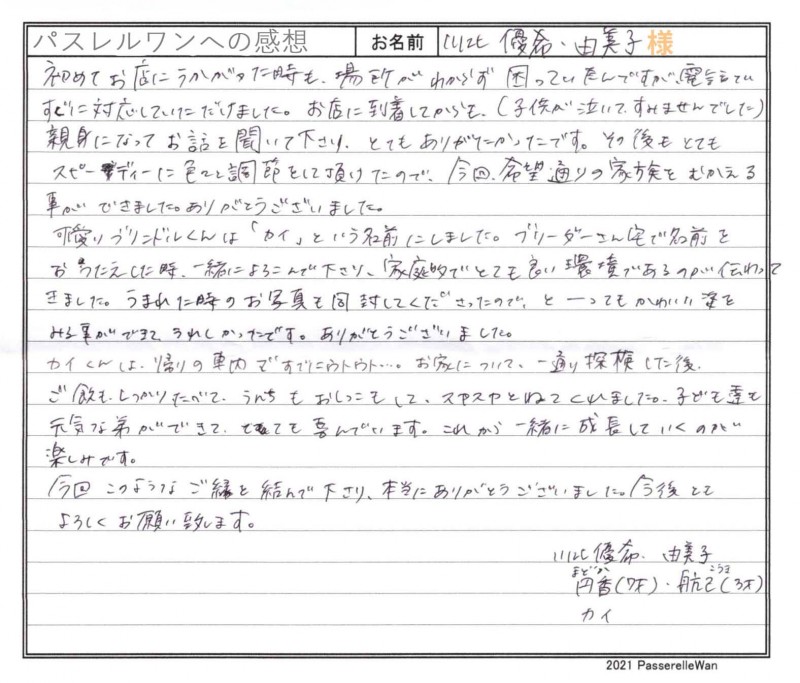 パスレルワンへの感想 お名前 川辺 優希・由美子 様
初めてお店にうかがった時も、場所がわからず 困っていたんですが、電話で
すぐに対応していただけました。お店に到着してからも、(子供が泣いてすみませんでした)
親身になってお話を聞いて下さり、とてもありがたかったです。その後もとても
スピーディーに色々と調節をして頂けたので、今回、希望通りの家族をむかえる
事ができました。ありがとうございました。
可愛いブリンドルくんは「カイ」という名前にしました。ブリーダーさん宅で名前を
おつたえした時、一緒によろこんで下さり、家庭的でとても良い環境であるのが伝わって
きました。うまれた時のお写真も同封してくださったので、と一ってもかわいい姿を
みる事ができて、うれしかったです。ありがとうございました。
カイくんは、帰りの車内ですでにウトウト…。お家について、一通り探検した後、
ご飯もしっかりたべて、うんちもおしっこもして、スヤスヤとねてくれました。子ども達も
元気な弟ができて、とても喜んでいます。これから一緒に成長していくのが
楽しみです。
今回このようなご縁を結んで下さり、本当にありがとうございました。今後とも
よろしくお願い致します。
優希・由美子
まどか こうき
円香(7才)・航己(3才)
カイ
2021 PasserelleWan